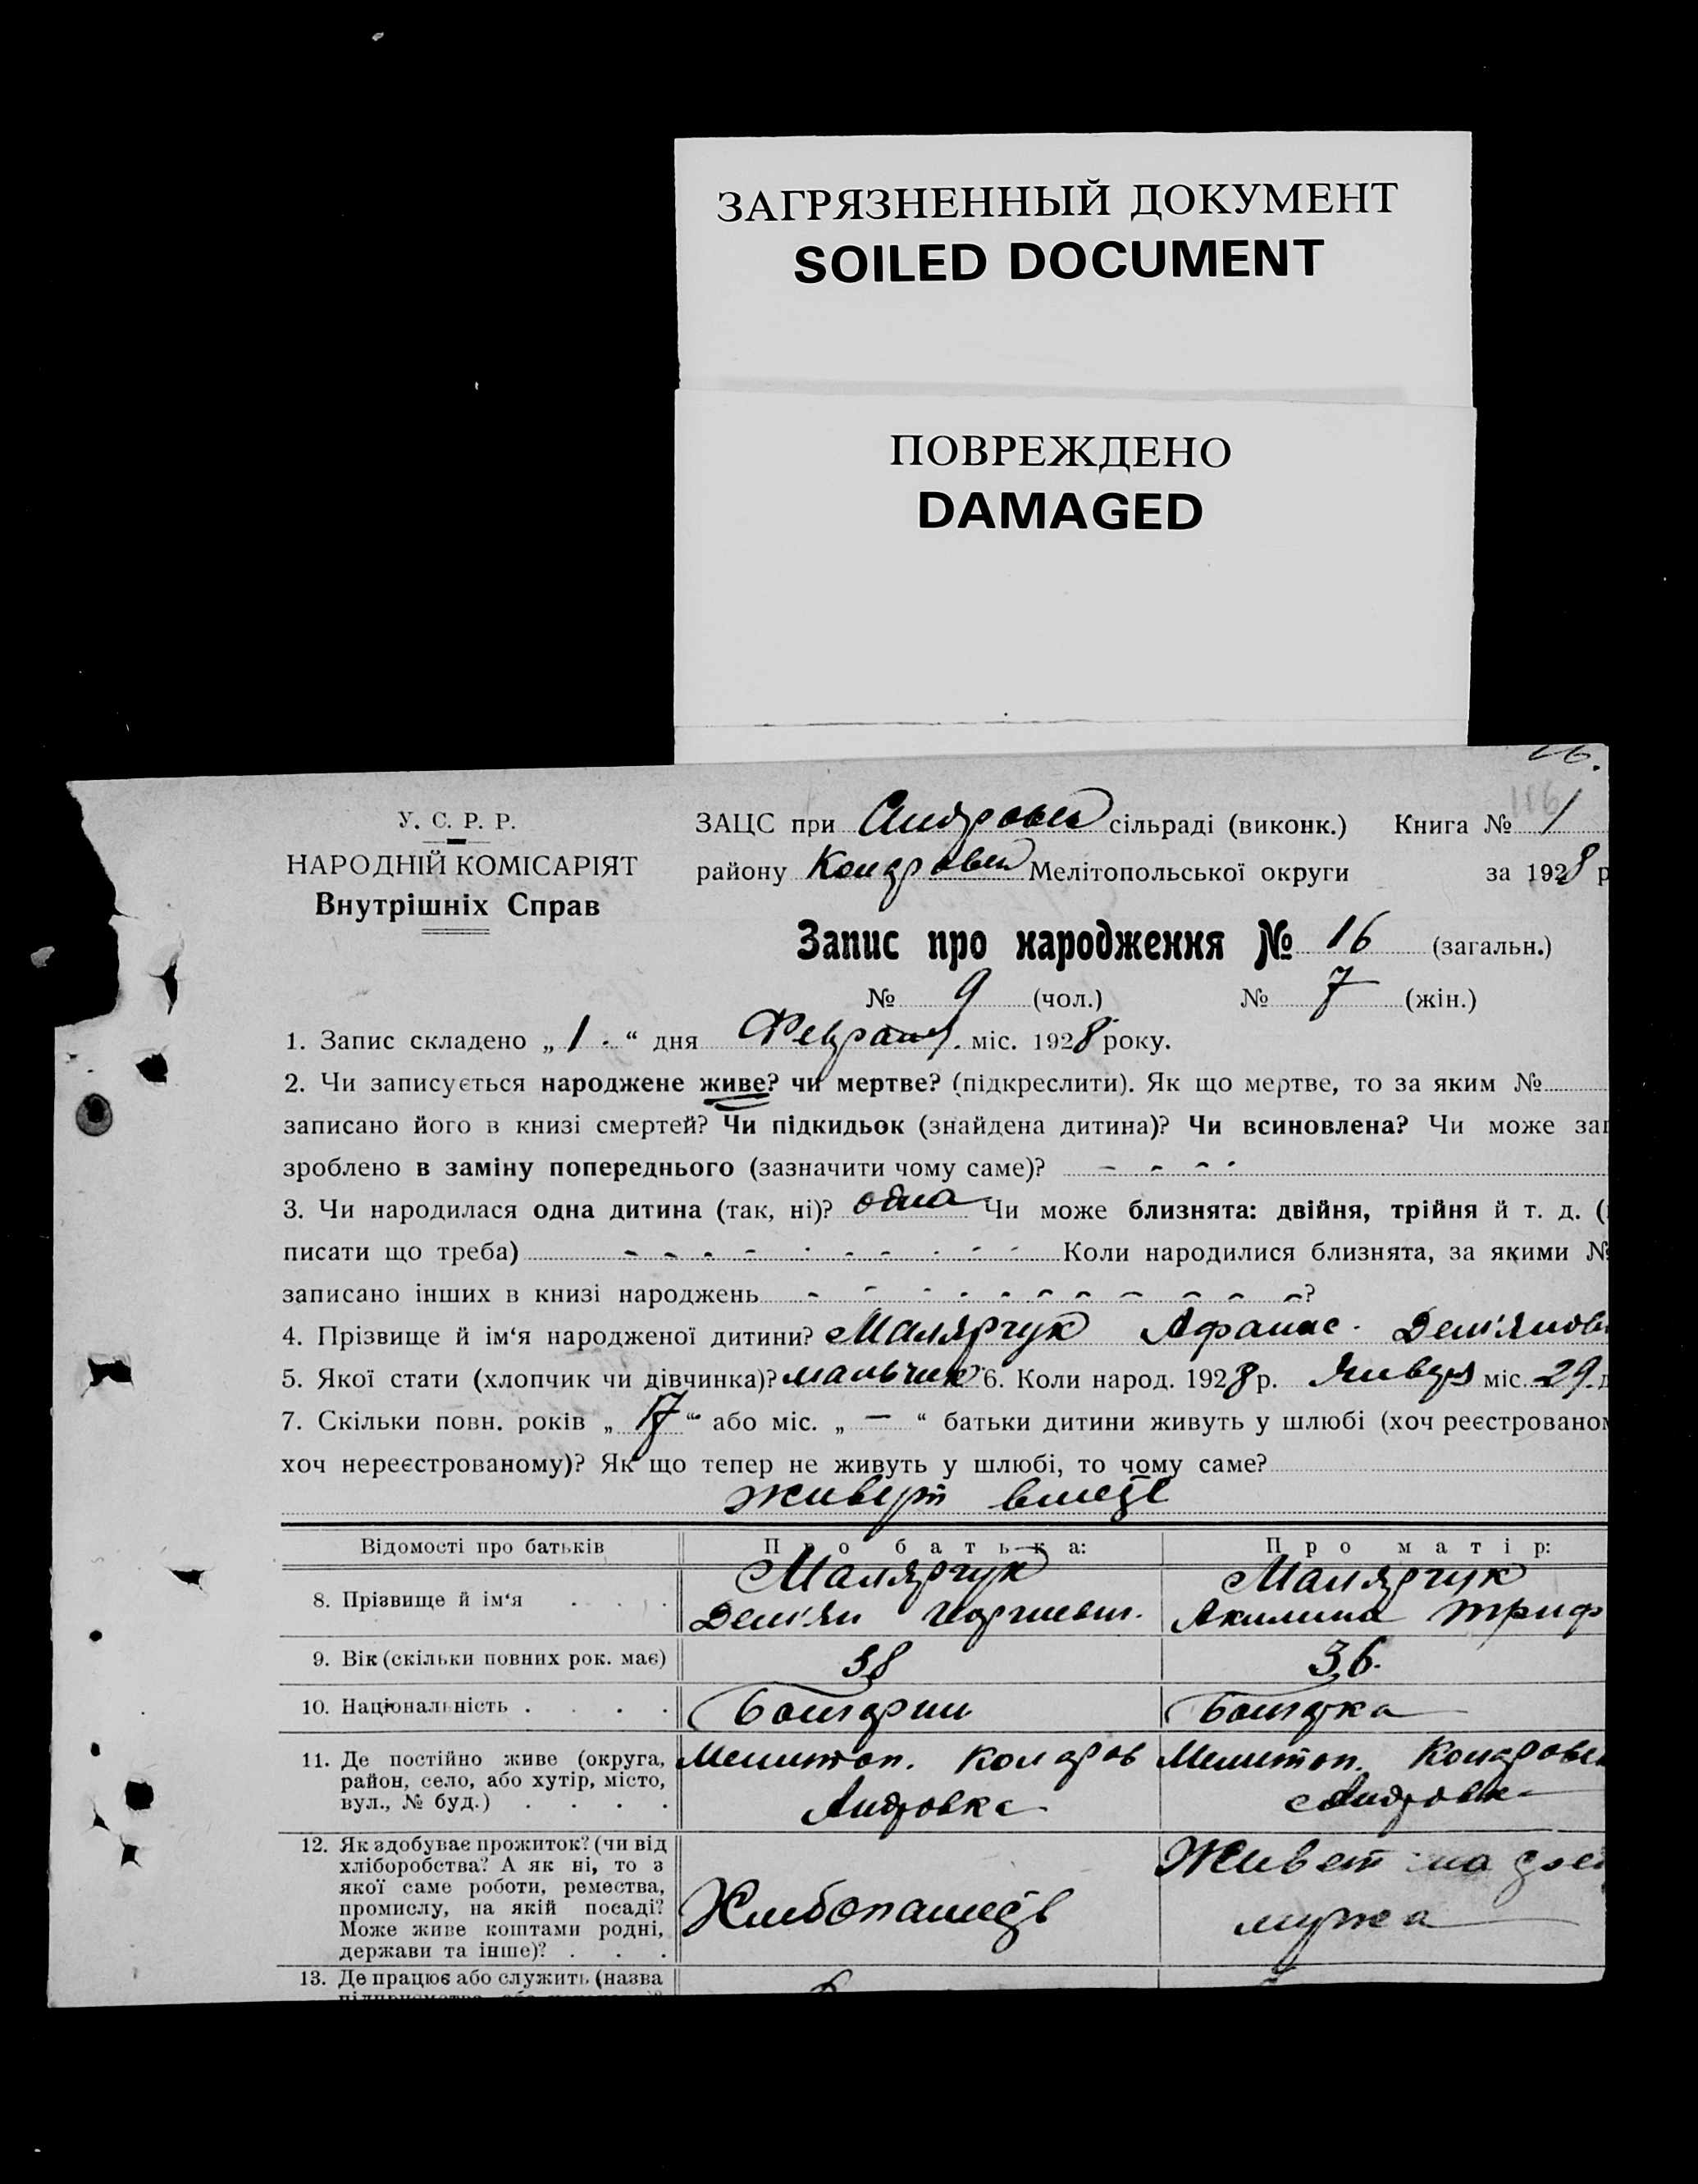 ЗАГРЯЗНЕННЫЙ ДОКУМЕНТ
SOILED DOCUMENT
ПОВРЕЖДЕНО
DAMAGED
116
У. С. Р. Р.
НАРОДНІЙ КОМІСАРІЯТ
Внутрішніх Справ
ЗАЦС при Андровей сільраді (виконк.) Книга № 1
району Коларовск Мелітопольської округи за 1928 р
Запис про народження № 16 (загальн.)
№ 9 (чол.) № 7 (жін.)
1. Запис складено „ 1 “ дня Февраля міс. 1928 року.
2. Чи записується народжене живе? чи мертве? (підкреслити). Як що мертве, то за яким №
записано його в книзі смертей? Чи підкидьок (знайдена дитина)? Чи всиновлена? Чи може
зроблено в заміну попереднього (зазначити чому саме)? - - - -
3. Чи народилася одна дитина (так, ні)? одна Чи може близнята: двійня, трійня й т. д. (
писати що треба) - - - - - - - - - - Коли народилися близнята, за якими №
записано інших в книзі народжень - - - - - - - - - - - ?
4. Прізвище й ім‘я народженої дитини? Малярчук Афанас. Дем'янов
5. Якої стати (хлопчик чи дівчинка)? мальчик 6. Коли народ. 1928 р. Январ міс. 29
7. Скільки повн. років „ 17 “ або міс. „ — “ батьки дитини живуть у шлюбі (хоч реєстрованом
хоч нереєстрованому)? Як що тепер не живуть у шлюбі, то чому саме?
живут вместе
Відомості про батьків Про батька: Про матір:
8. Прізвище й ім‘я . . . Малярчук Малярчук
Дем'ян Акилина Триф
9. Вік (скільки повних рок. має) 38 36.
10. Національність . . . . Болгарин Болгарка
11. Де постійно живе (округа, Мелитоп. Коларов Мелитоп. Коларовск
район, село, або хутір, місто,
вул., № буд.) . . . . Андровка Андровка
12. Як здобуває прожиток? (чи від Живет на
хліборобства? А як ні, то з
якої саме роботи, ремества,
промислу, на якій посаді? Хлебопашец мужа
Може живе коштами родні,
держави та інше)? . . .
13. Де працює або служить (назва